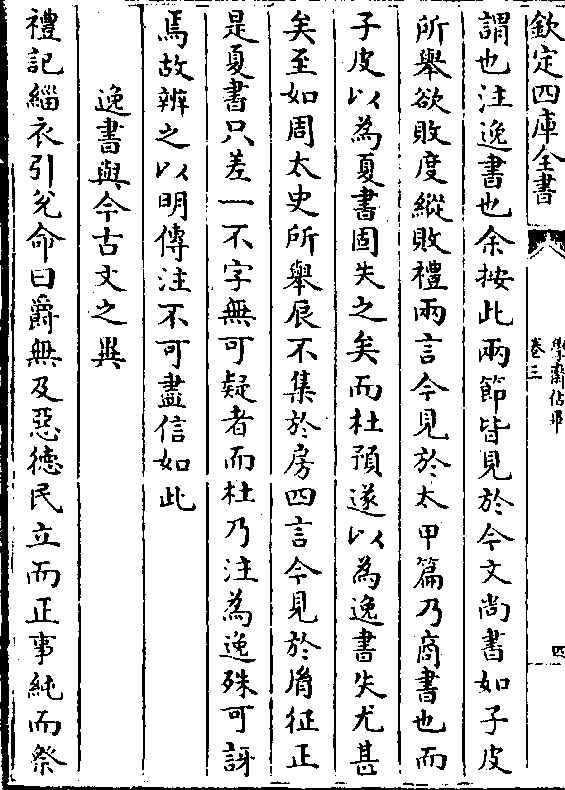 欽定四庫全書
學齋佔畢
卷三
四
謂也注逸書也余按此兩節皆見於今文尚書如子皮
所舉欲敗度縱敗禮兩言今見於太甲篇乃商書也而
子皮以為夏書固失之矣而杜預遂以為逸書失尤甚
矣至如周太史所舉辰不集於房四言今見於𦙍征正
是夏書只差一不字無可疑者而杜乃注為逸殊可訝
焉故辨之以明傳注不可盡信如此
逸書與今古文之異
禮記緇衣引兊命曰爵無及惡徳民立而正事純而祭